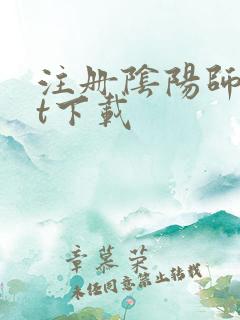 注册陰陽師
t下載
章慕荣
未经同意禁止转载